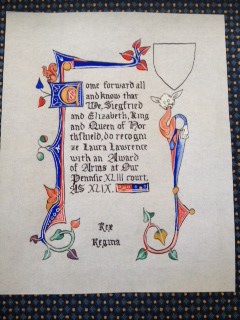 Come forward all
and know that
We, Siegfried
and Elizabeth, King
and Queen of Nor
thshield, do recogni
ze Laura Lawrence
with an Award
of Arms at Our
Pennsic XLIII court,
AS XLIX.
Rex
Regina